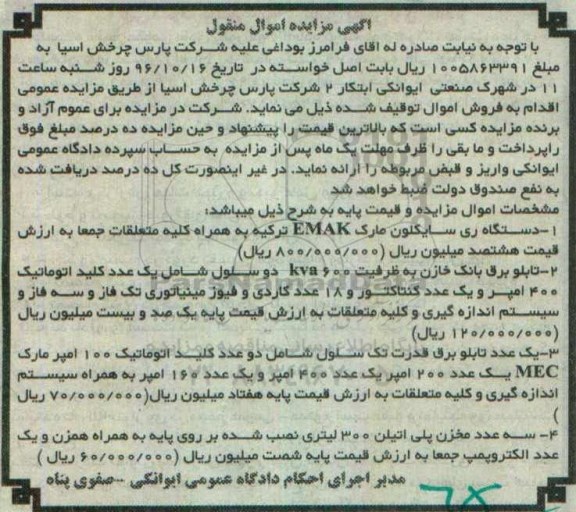 آگهی مزایده اموال منقول
با توجه به نیابت صادره له اقای فرامرز بوداغی علیه شرکت پارس چرخش اسیا به
مبلغ ۱۰۰۵۸۶۳۳۹۱ ریال بابت اصل خواسته در تاریخ ۹۶/۱۰/۱۶ روز شنبه ساعت
۱۱ در شهرک صنعتی ایوانکی ابتکار ۲ شرکت پارس چرخش اسیا از طریق مزایده عمومی
اقدام به فروش اموال توقیف شده ذیل می نماید. شرکت در مزایده برای عموم آزاد و
برنده مزایده کسی است که بالاترین قیمت را پیشنهاد و حین مزایده ده درصد مبلغ فوق
راپرداخت و ما بقی را ظرف مهلت یک ماه پس از مزایده به حساب سپرده دادگاه عمومی
ایوانکی واریز و قبض مربوطه را ارائه نماید. در غیر اینصورت کل ده درصد دریافت شده
به نفع صندوق دولت ضبط خواهد شد
مشخصات اموال مزایده و قیمت پایه به شرح ذیل میباشد:
۱-دستگاه ری سایگلون مارک EMAK ترکیه به همراه کلیه متعلقات جمعا به ارزش
قیمت هشتصد میلیون ریال (۸۰۰/۰۰۰/۰۰۰ ریال)
۲-تابلو برق بانک خازن به ظرفیت ۶۰۰ kva دو سلول شامل یک عدد کلید اتوماتیک
۴۰۰ امپر و یک عدد کنتاکتور و ۱۸ عدد کاردی و فیوز مینیاتوری تک فاز و سه فاز و
سیستم اندازه گیری و کلیه متعلقات به ارزش قیمت پایه یک صد و بیست میلیون ریال
(۱۲۰/۰۰۰/۰۰۰ ریال)
۳-یک عدد تابلو برق قدرت تک سلول شامل دو عدد کلید اتوماتیک ۱۰۰ امپر مارک
MEC یک عدد ۲۰۰ امپر یک عدد ۴۰۰ امپر و یک عدد ۱۶۰ امپر به همراه سیستم
اندازه گیری و کلیه متعلقات به ارزش قیمت پایه هفتاد میلیون ریال(۷۰/۰۰۰/۰۰۰ ریال
)
۴- سه عدد مخزن پلی اتیلن ۳۰۰ لیتری نصب شده بر روی پایه به همراه همزن و یک
عدد الکتروپمپ جمعا به ارزش قیمت پایه شصت میلیون ریال (۶۰/۰۰۰/۰۰۰ ریال )
مدیر اجرای احکام دادگاه عمومی ایوانکی -صفوی پناه